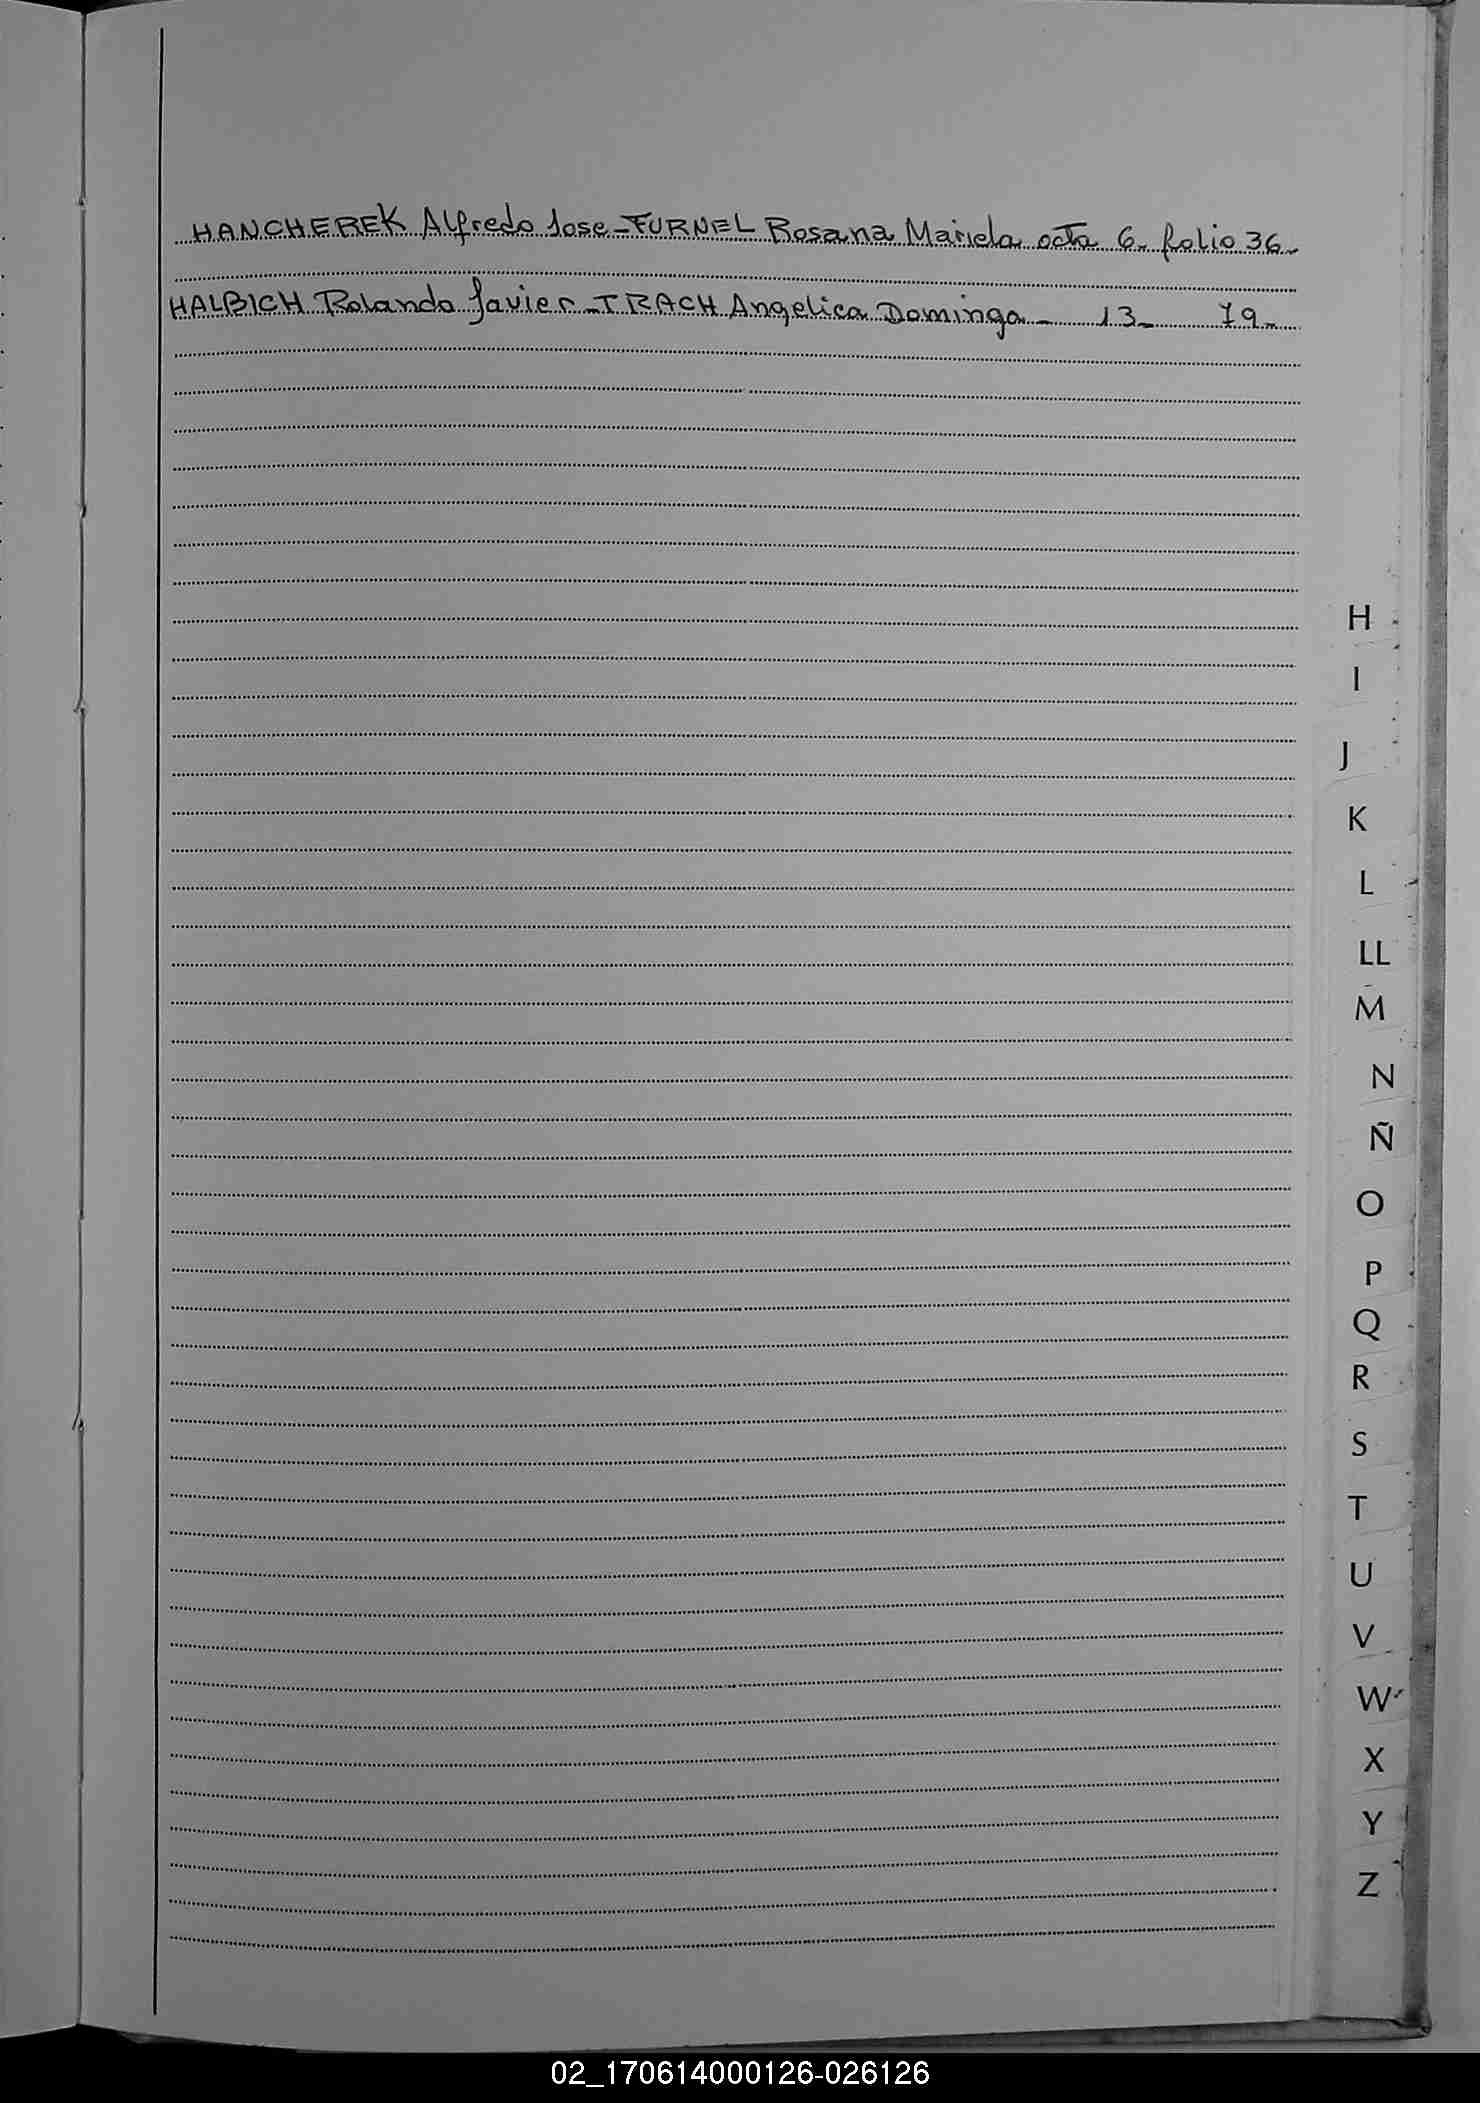 HANCHEREK Alfredo Jose - FURNEL Rosana Mariela acta 6- folio 36-
HALBICH Rolando Javier - TRACH Angelica Dominga - 13- 79-
H
I
J
K
L
LL
M
N
Ñ
O
P
Q
R
S
T
U
V
W
X
Y
Z
02_170614000126-026126